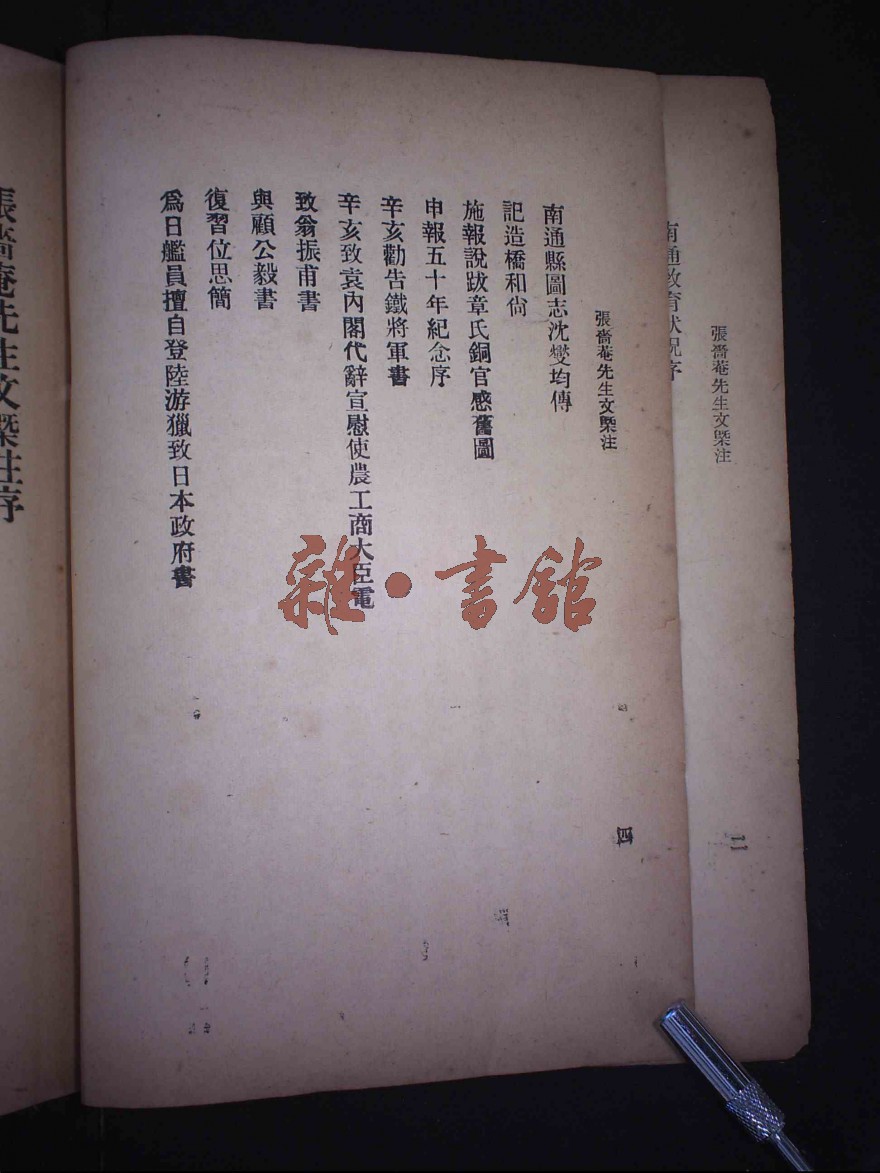 張嗇菴先生文槩注
二
南通教育狀況序
張嗇菴先生文槩注
四
南通縣圖志沈燮均傳
記造橋和尙
施報說跋章氏銅官感舊圖
申報五十年紀念序
辛亥勸告鐵將軍書
辛亥致袁內閣代辭宣慰使農工商大臣電
致翁振甫書
與顧公毅書
復習位思簡
爲日艦員擅自登陸游獵致日本政府書
張嗇菴先生文槩注序
雜·書館